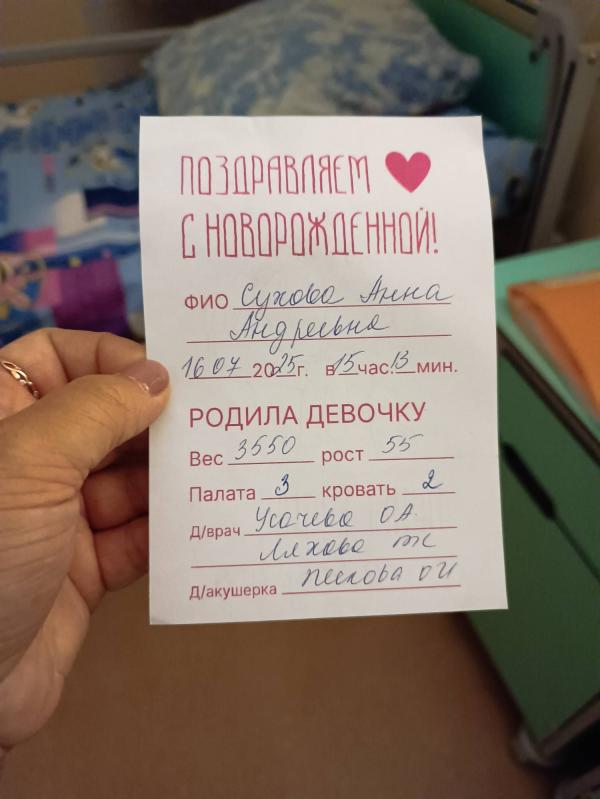 ПОЗДРАВЛЯЕМ
С НОВОРОЖДЕННОЙ!
ФИО Сухова Анна
Андреевна
16 07 2025 г. в 15 час. 13 мин.
РОДИЛА ДЕВОЧКУ
Вес 3550 рост 55
Палата 3 кровать 2
Д/врач Усачева О.А.
Ляхова
Д/акушерка Пескова ОИ